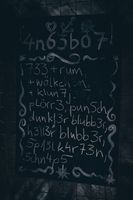 4n63b07!
733 + rum
+ wolken
+ klun7j
pl0rr3 pun5ch
dunkl3r blubb3r
h3ll3r blubb3r
5p45lk4r73n
5chn4p5